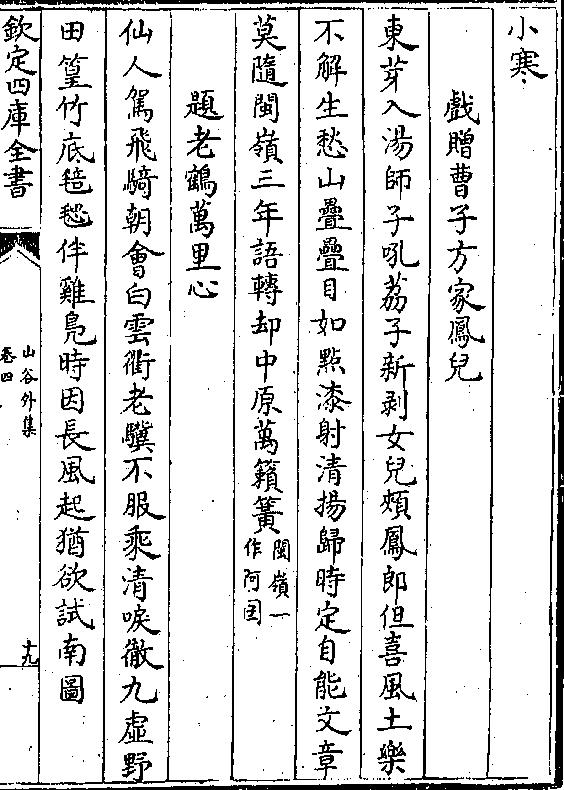 小寒
戲贈曹子方家鳳兒
東芽入湯師子吼荔子新剥女兒頰鳳郎但喜風土樂
不解生愁山疊疊目如點漆射清揚歸時定自能文章
莫隨閩嶺三年語轉却中原萬籟簧閩嶺一作阿囝
題老鶴萬里心
仙人駕飛騎朝會白雲衢老驥不服乘清唳徹九虛野
田篁竹底毰毸伴雞鳬時因長風起猶欲試南圖
欽定四庫全書
山谷外集
卷四
十九